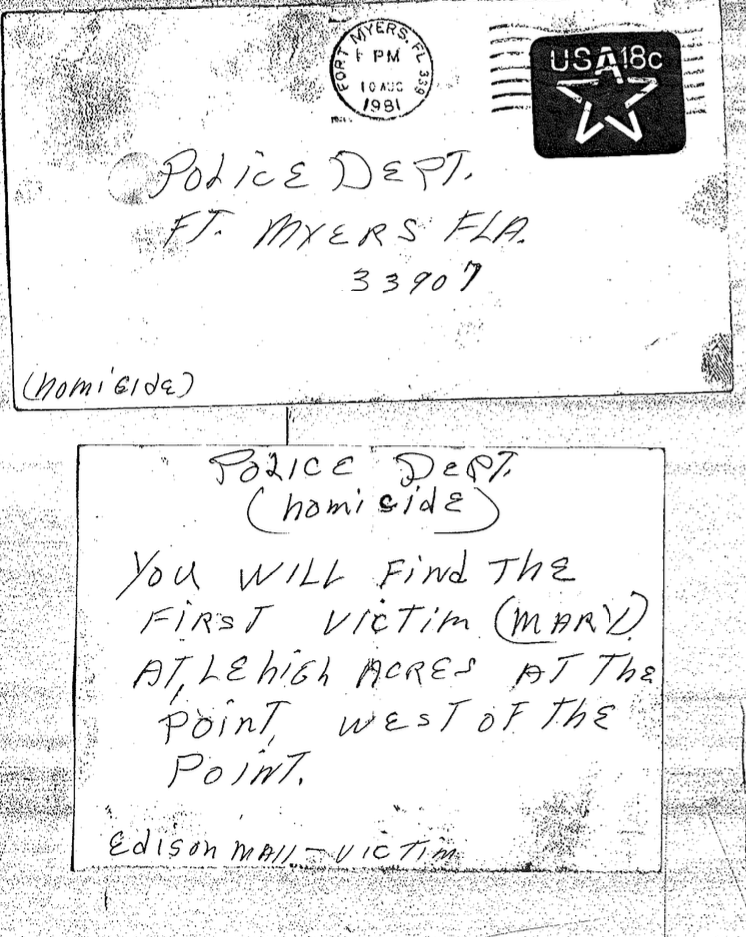 FORT MYERS, FL 339
PM
10 AUG
1981
USA 18c
POLICE DEPT.
FT. MYERS FLA.
33907
(homicide)
POLICE DEPT.
(homicide)
YOU WILL FIND THE
FIRST VICTIM (MARY)
AT, LEhigh ACRES AT THE
POINT, WEST OF THE
POINT.
Edison MALL - VICTIM